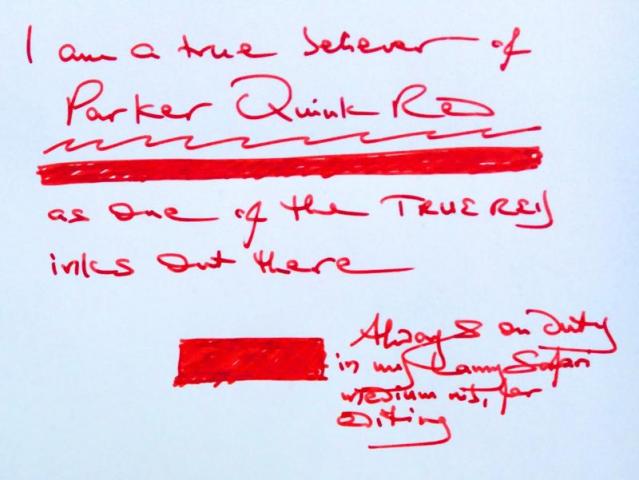 I am a true believer of
Parker Quink Red
as one of the TRUE RED
inks out there
Always on duty
in my Lamy Safari
medium nib, for
editing